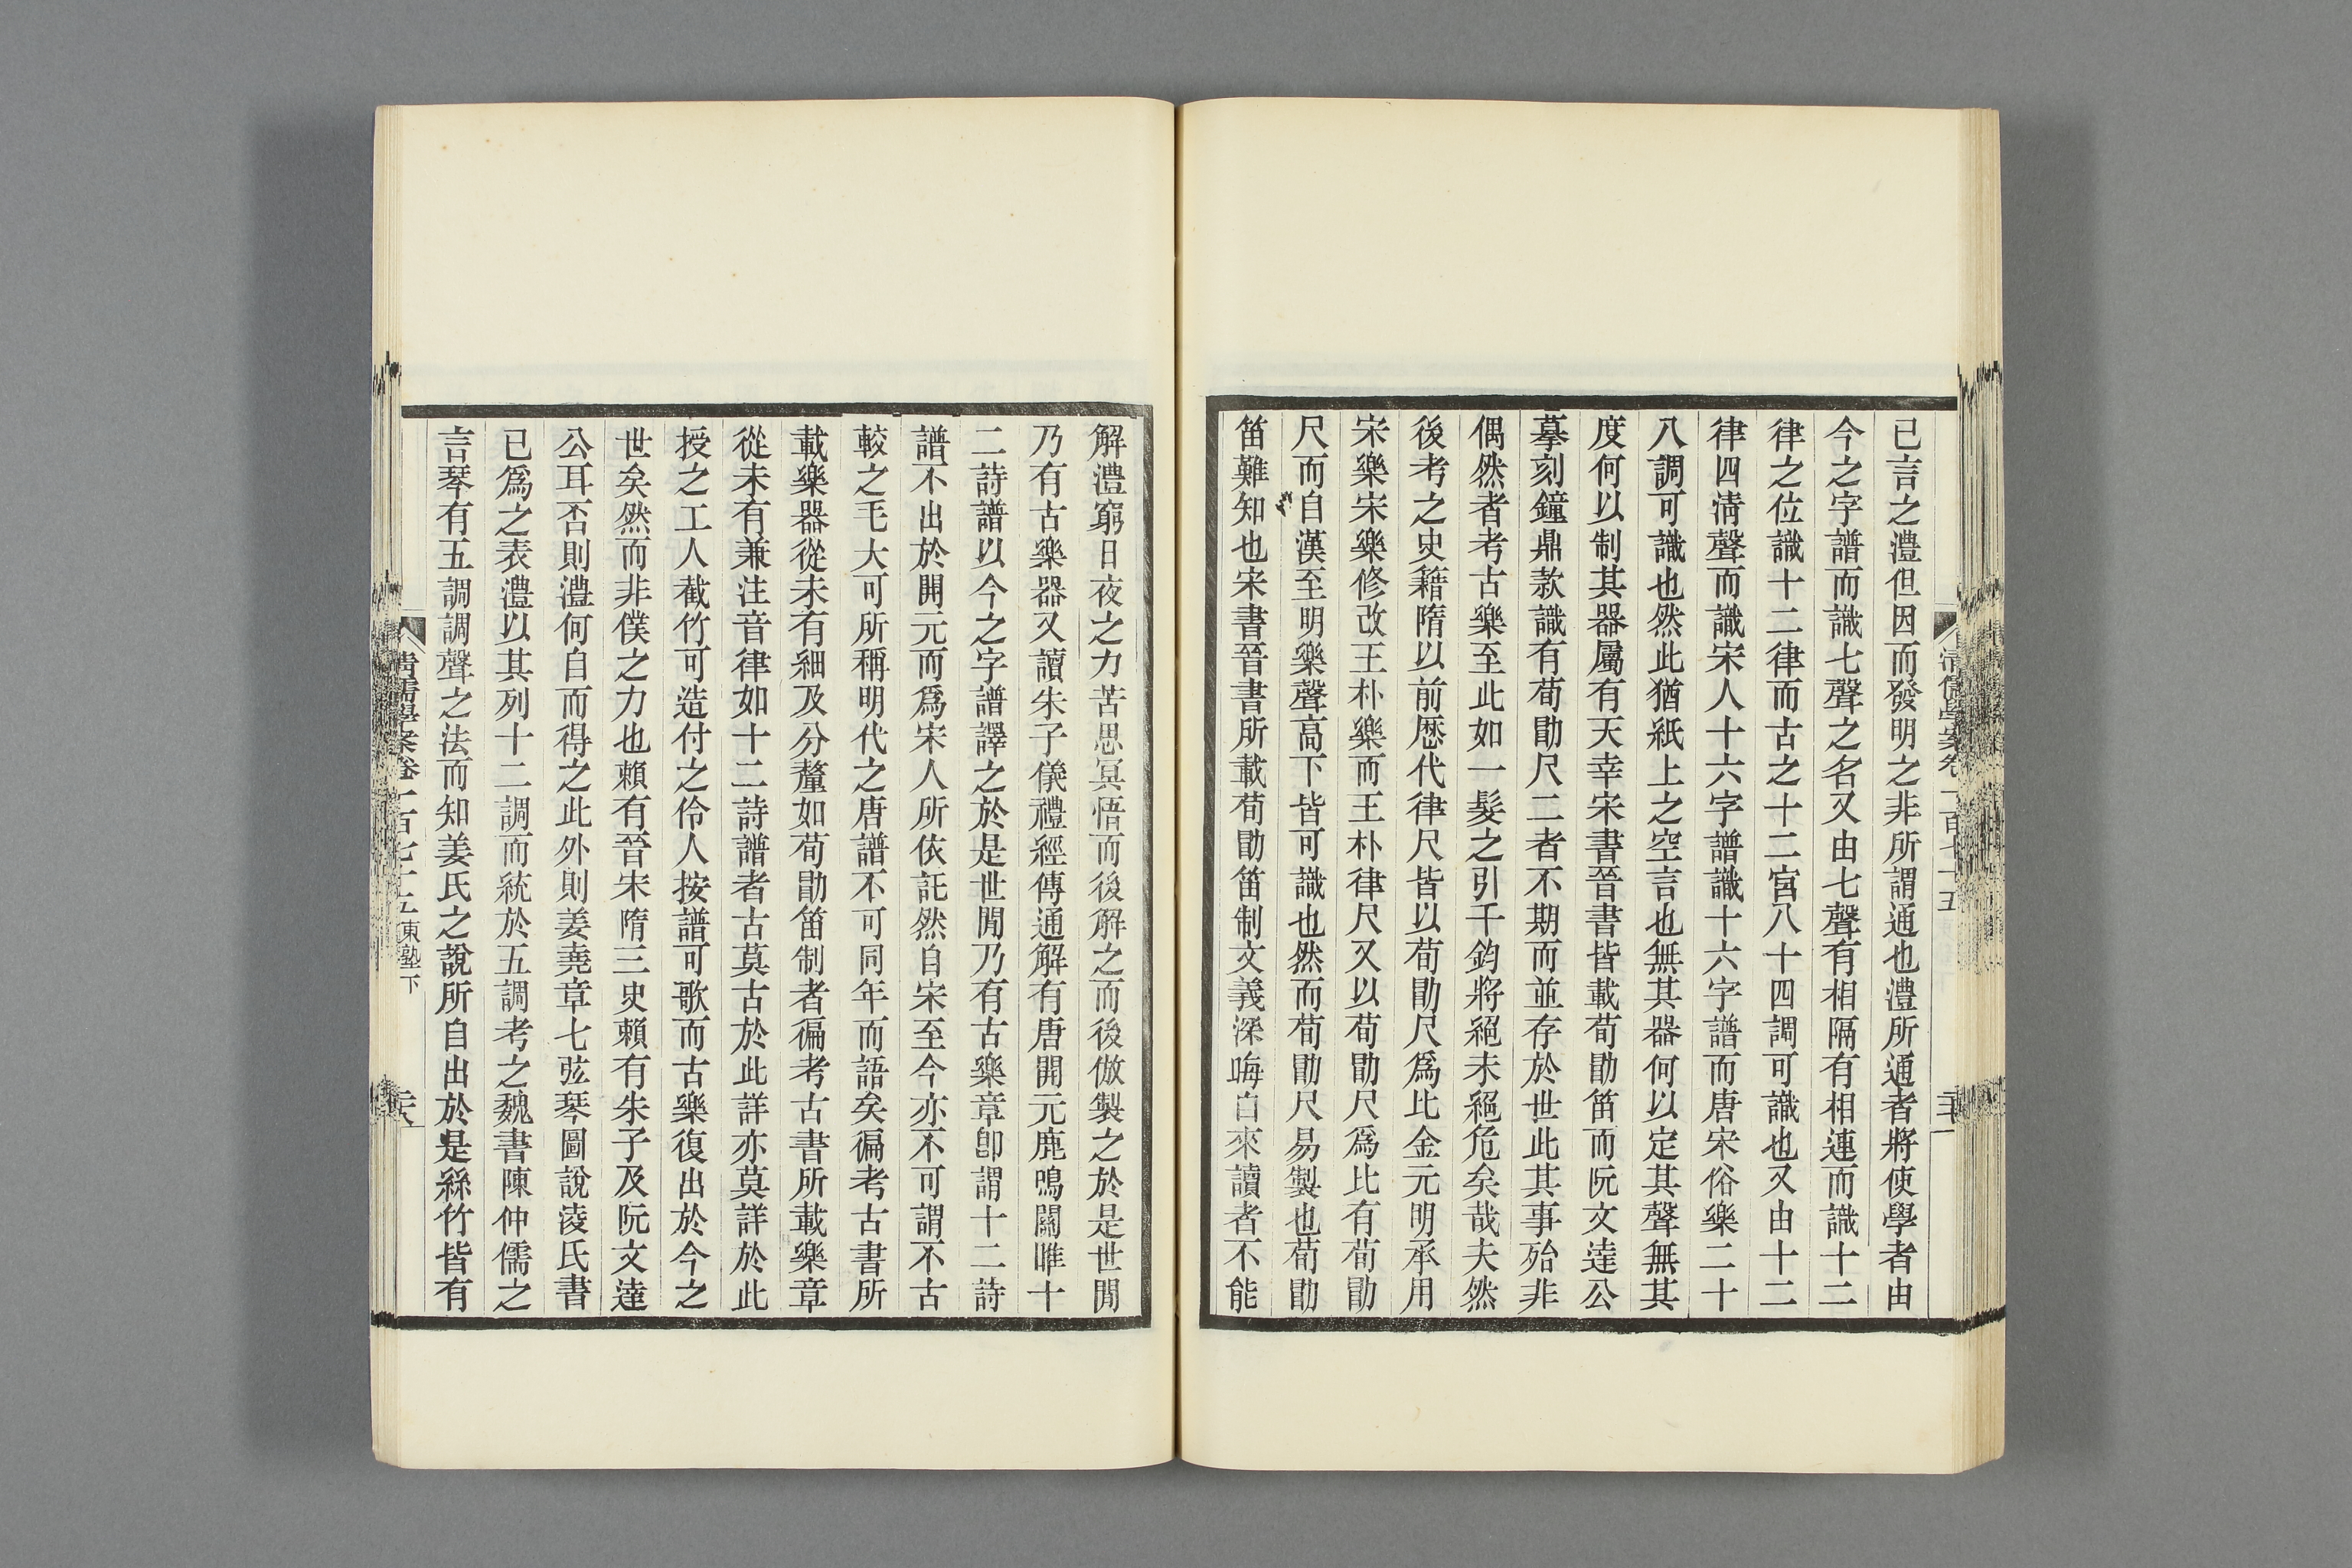 已言之澧但因而發明之非所謂通也澧所通者將使學者由
今之字譜而識七聲之名又由七聲有相隔有相連而識十二
律之位識十二律而古之十二宮八十四調可識也又由十二
律四清聲而識宋人十六字譜識十六字譜而唐宋俗樂二十
八調可識也然此猶紙上之空言也無其器何以定其聲無其
度何以制其器屬有天幸宋書晉書皆載荀勖笛而阮文達公
摹刻鐘鼎款識有荀勖尺二者不期而並存於世此其事殆非
偶然者考古樂至此如一髮之引千鈞將絕未絕危矣哉夫然
後考之史籍隋以前歷代律尺皆以荀勖尺爲比金元明承用
宋樂宋樂修改王朴樂而王朴律尺又以荀勖尺爲比有荀勖
尺而自漢至明樂聲高下皆可識也然而荀勖尺易製也荀勖
笛難知也宋書晉書所載荀勖笛制文義深晦自來讀者不能
解澧窮日夜之力苦思冥悟而後解之而後倣製之於是世閒
乃有古樂器又讀朱子儀禮經傳通解有唐開元鹿鳴關雎十
二詩譜以今之字譜譯之於是世閒乃有古樂章卽謂十二詩
譜不出於開元而爲宋人所依託然自宋至今亦不可謂不古
較之毛大可所稱明代之唐譜不可同年而語矣徧考古書所
載樂器從未有細及分釐如荀勖笛制者徧考古書所載樂章
從未有兼注音律如十二詩譜者古莫古於此詳亦莫詳於此
授之工人截竹可造付之伶人按譜可歌而古樂復出於今之
世矣然而非僕之力也賴有晉宋隋三史賴有朱子及阮文達
公耳否則澧何自而得之此外則姜堯章七弦琴圖說淩氏書
已爲之表澧以其列十二調而統於五調考之魏書陳仲儒之
言琴有五調調聲之法而知姜氏之說所自出於是絲竹皆有
清儒學案卷一百七十五 東塾下